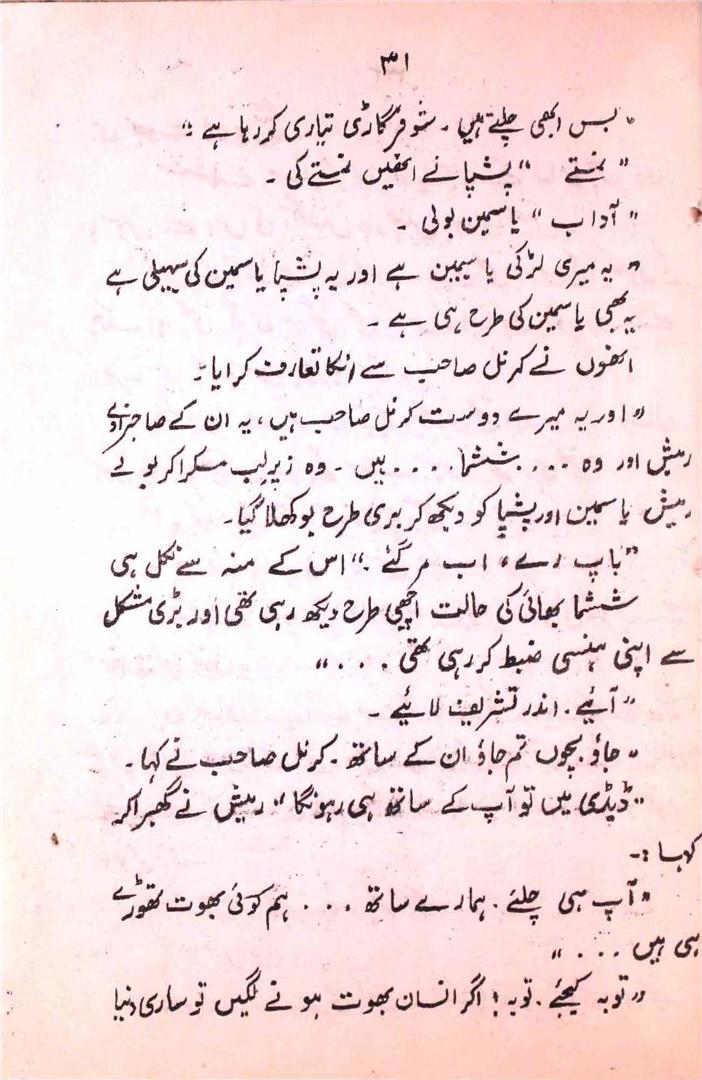 ۳۱
"بس ابھی چلتے ہیں۔ شوفر گاڑی تیاری کر رہا ہے"
"نمستے" پشپا نے انھیں نمستے کی۔
"آداب" یاسمین بولی۔
"یہ میری لڑکی یاسیمین ہے اور یہ پشپا یاسمین کی سہیلی ہے
یہ بھی یاسمین کی طرح ہی ہے۔
انھوں نے کرنل صاحب سے انکا تعارف کرایا۔
"اور یہ میرے دوست کرنل صاحب ہیں، یہ ان کے صاحبزادے
رمیش اور وہ ... ششما .... ہیں۔ وہ زیرِلب مسکرا کر بولے
رمیش یاسمین اور پشپا کو دیکھ کر بری طرح بوکھلا گیا۔
"باپ رے، اب مر گئے۔" اس کے منہ سے نکل ہی
ششما بھائی کی حالت اچھی طرح دیکھ رہی تھی اور بڑی مشکل
سے اپنی ہنسی ضبط کر رہی تھی ...."
"آئیے. اندر تشریف لائیے۔
"جاؤ بچوں تم جاؤ ان کے ساتھ۔ کرنل صاحب نے کہا۔
"ڈیڈی میں تو آپ کے ساتھ ہی رہونگا" رمیش نے گھبرا کر
کہا:۔
"آپ ہی چلئے. ہمارے ساتھ ... ہم کوئی بھوت تھوڑے
ہی ہیں ...."
"توبہ کیجئے. توبہ! اگر انسان بھوت ہونے لگیں تو ساری دنیا